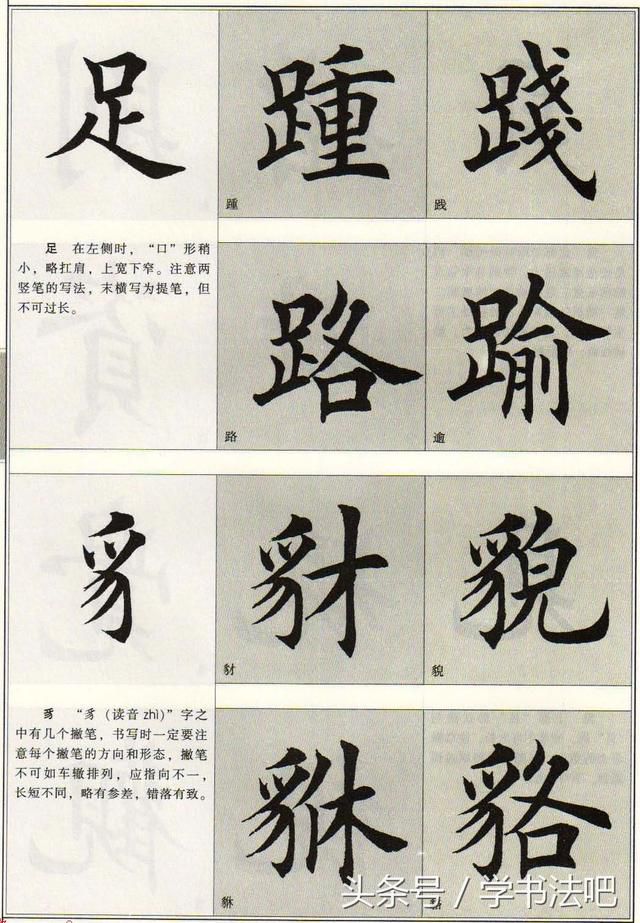 足 踵 踐
踵 践
足 在左侧时，“口”形稍
小，略扛肩，上宽下窄。注意两
竖笔的写法，末横写为提笔，但
不可过长。
路 踰
路 逾
豸 豺 貌
豺 貌
豸 “豸（读音 zhì）”字之
中有几个撇笔，书写时一定要注
意每个撇笔的方向和形态，撇笔
不可如车辙排列，应指向不一，
长短不同，略有参差，错落有致。
貅 貉
貅
头条号／学书法吧